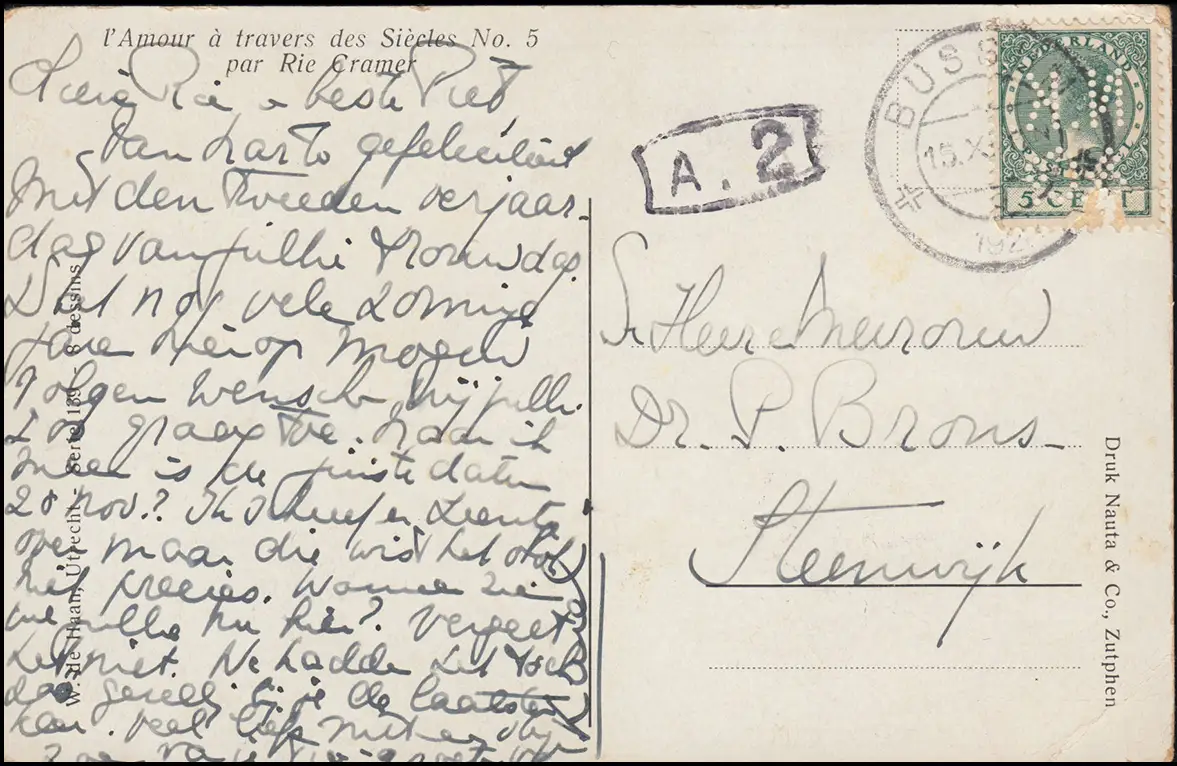 l'Amour à travers des Siècles No. 5
par Rie Cramer
Lieve Rie en beste Piet,
Van harte gefeliciteerd
met den tweeden verjaar-
dag van jullie trouwdag.
Dat nog vele zonnige
jaren hierop mogen
volgen wenschen wij jullie
zoo graag toe. Maar ik
meen is de juiste datum
20 nov.? Ik schreef er
over maar die wist het ook
niet precies. Wanneer zien
we jullie nu hier? Vergeet
het niet. We hadden het toch
gezellig bij je de laatste
keer. Veel liefs
W. de Haan, Utrecht. Serie 139 - 8 dessins
A. 2
BUSS
15.X
192
NEDERLAND
5 CENT
Heer en Mevrouw
Dr. P. Brons
Steenwijk
Druk Nauta & Co., Zutphen